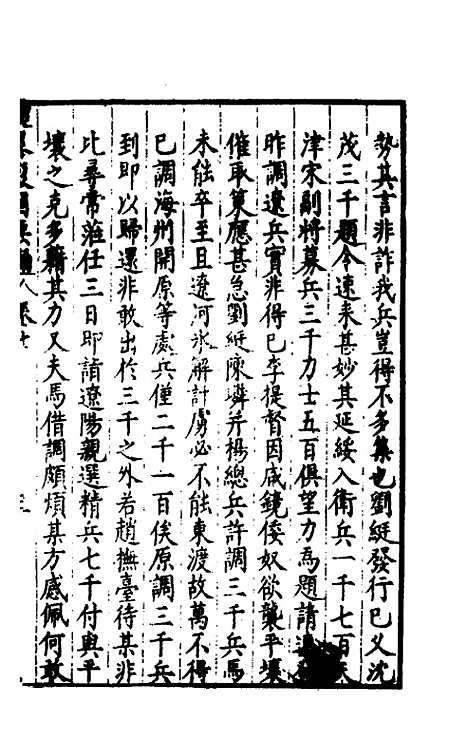 勢其言非詐我兵豈得不多集也劉綎發行已久沈
茂三千題令速來甚妙其延綏入衛兵一千七百天
津宋副將募兵三千力士五百俱望力為題請
昨調遼兵實非得已李提督因咸鏡倭奴欲襲平壤
催取策應甚急劉綎陳璘并楊總兵許調三千兵馬
未能卒至且遼河氷解計虜必不能東渡故萬不得
已調海州開原等處兵僅二千一百俟原調三千兵
到即以歸還非敢出於三千之外若趙撫臺待某非
比尋常蒞任三日即請遼陽親選精兵七千付與平
壤之克多籍其力又夫馬借調頗煩某方感佩何敢
經畧復國要編 卷七